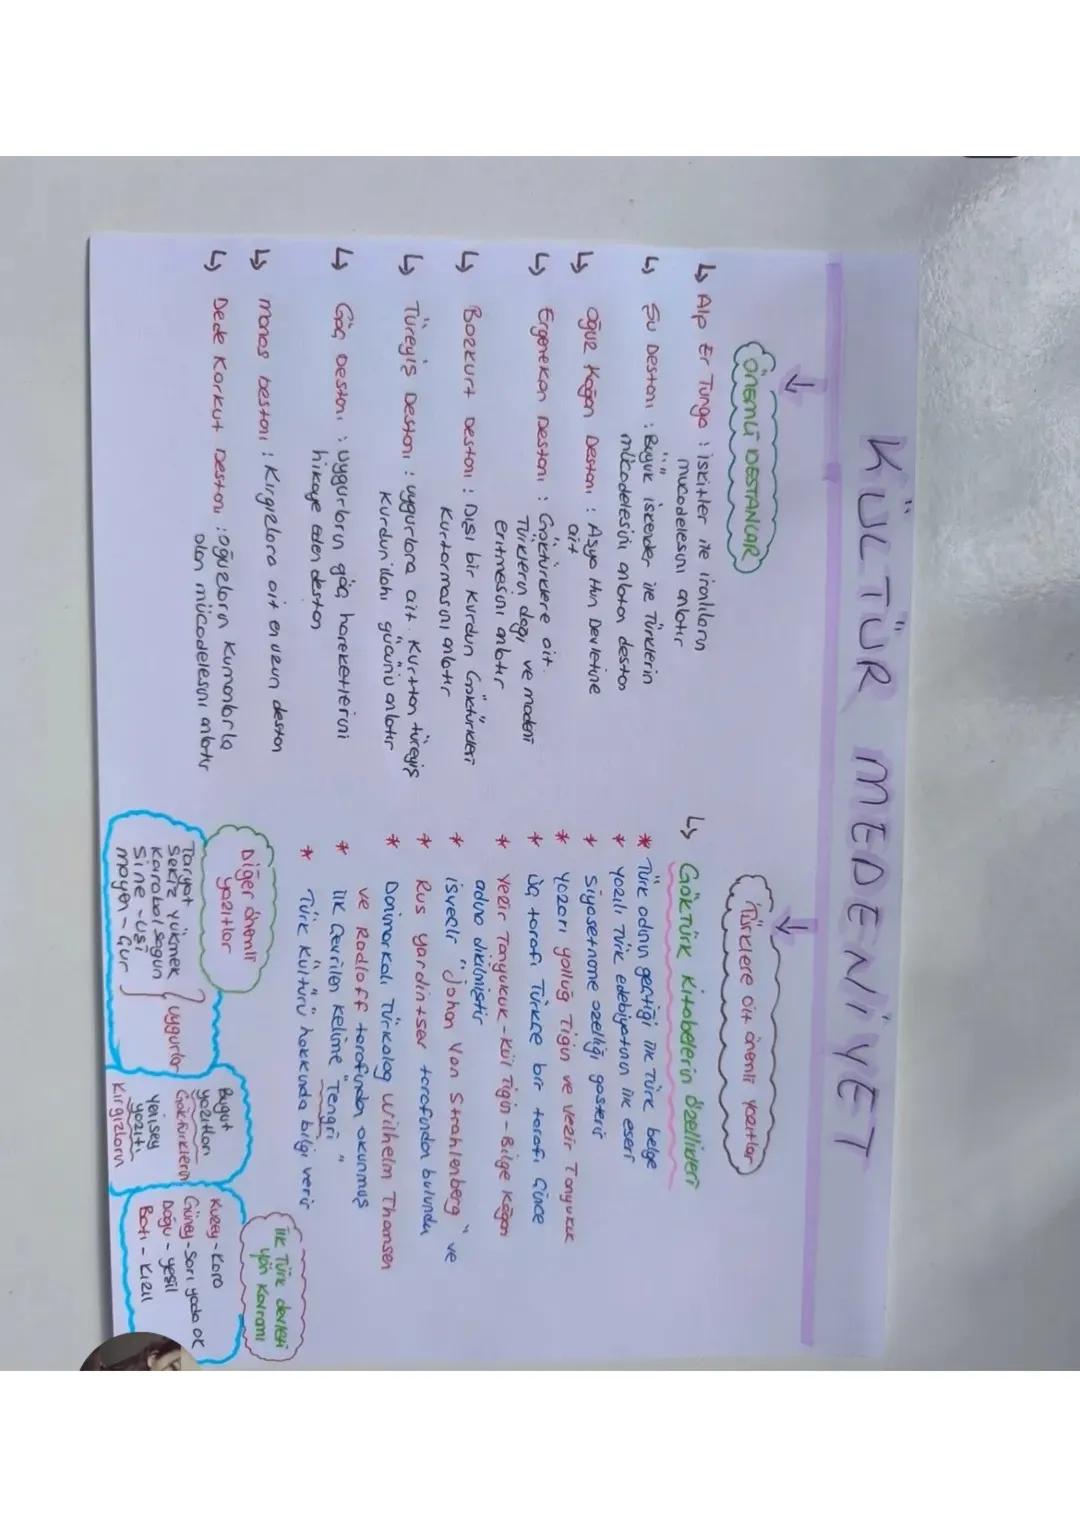 KÜLTÜR MEDENİYET
ÖNEMLİ DESTANLAR
↳ Alp Er Tunga : iskitler ile iranlıların
mücadelesini anlatır
↳ Şu Destanı : Büyük iskender ile Türklerin
mücadelesini anlatan destan
↳ Oğuz Kağan Destanı : Asya Hun Devletine
ait
↳ Ergenekon Destanı : Göktürklere ait.
Türklerin dağı ve madeni
eritmesini anlatır
↳ Bozkurt Destanı : Dişi bir kurdun Göktürkleri
kurtarmasını anlatır
↳ Türeyiş Destanı : uygurlara ait. Kurttan türeyiş
kurdun ilahi gücünü anlatır
↳ Göç Destanı : uygurların göç hareketlerini
hikaye eden destan
↳ Manas Destanı : Kırgızlara ait en uzun destan
↳ Dede Korkut Destanı : oğuzların Kumanlarla
olan mücadelesini anlatır
Türklere ait önemli yazıtlar
↳ Göktürk Kitabelerin özellikleri
* Türk adının geçtiği ilk Türk belge
* yazılı Türk edebiyatının ilk eseri
* siyasetname özelliği gösterir
* yazarı yolluğ Tigin ve vezir Tonyukuk
* üç tarafı Türkçe bir tarafı Çince
* vezir Tonyukuk - Kül Tigin - Bilge Kağan
adına dikilmiştir
* isveçlr "johan Von Strahlenberg" ve
* Rus yardintser tarafından bulundu
* Danimarkalı Türkolog Wilhelm Thomsen
ve Radloff tarafından okunmuş
* ilk Çevrilen kelime "Tengri"
* Türk kültürü hakkında bilgi verir
Diğer önemli
yazıtlar
Taryat
Sekiz yükmek
Karabalsagun
Sine - uşi
moyen - Çur
uygurlar
Bugut
yazıtları
Göktürklerin
Yenisey
yazıtı
Kırgızların
ilk Türk devleti
yön kavramı
Kuzey - Kara
Güney - Sarı yada ak
Doğu - yeşil
Batı - Kızıl